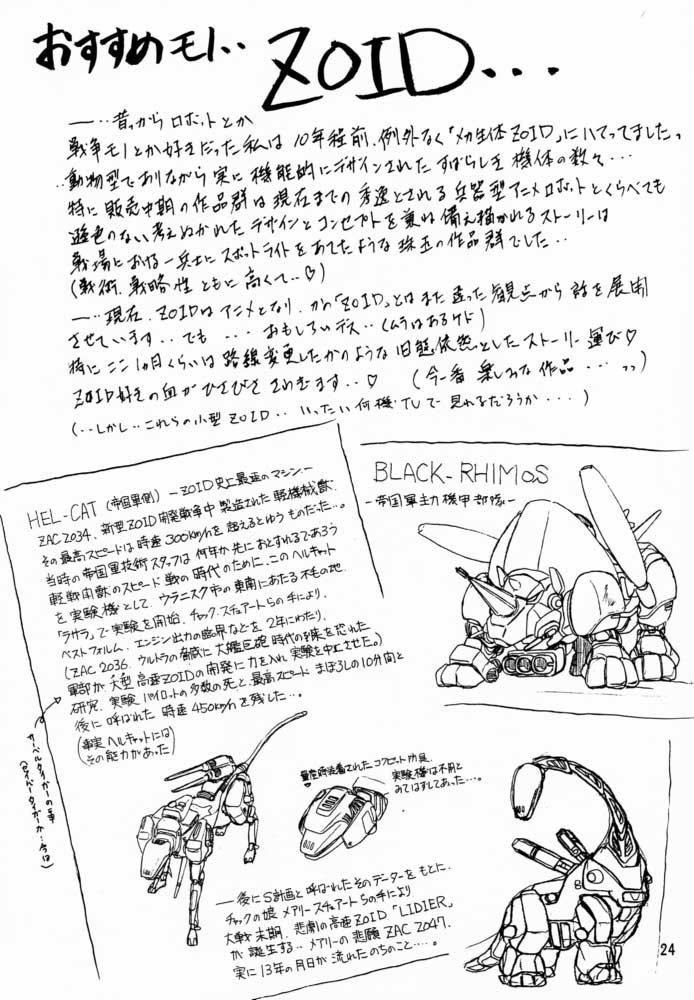 おすすめモノ‥ ZOID...
―‥昔っから ロボットとか
戦争モノとか好きだった私は 10年程前、例外なく「メカ生体ZOID」にハマってましたっ
‥動物型でありながら実に 機能的にデザインされた すばらしき 機体の数々‥・
特に 販売中期の作品群は 現在までの 秀逸とされる 兵器型アニメロボットとくらべても
遜色のない 考えぬかれた デザインと コンセプトを 兼ね 備え 描かれる ストーリーは
戦場における一兵士に スポットライトを あてたような 珠玉の 作品群でした‥
(戦術、戦略性 ともに 高くて‥♡)
―‥現在、ZOIDは アニメとなり、かの「ZOID」とは また 違った 観点から 話を 展開
させています‥ でも ‥・ おもしろいデス‥(ムラはあるケド)
特に ここ1ヵ月くらいは 路線変更したかのような 旧態依然としたストーリー 運び♡
ZOID好きの 血が ひさびさ さわぎます‥♡ (今一番 楽しみな 作品‥・ っっ)
(‥しかし‥これらの小型 ZOID‥ いったい 何機 TVで 見れるだろうか‥・)
HEL-CAT (帝国軍側) ―ZOID史上最速のマシン―
ZAC2034、新型ZOID開発戦争中 製造された 軽機械獣。
その最高スピードは 時速 300km/hを 超えるとゆう ものだった‥。
当時の帝国軍技術スタッフは 何年か 先に おとずれるであろう
軽戦闘獣のスピード 戦の 時代の ために、この ヘルキャット
を 実験機 として、ウラニスク市の 東南にあたる 不毛の地、
「ラサラ」で 実験を 開始、チャック、スチュアートらの 手により、
ベストフォルム、エンジン出力の 臨界などを 2年にわたり、
(ZAC 2036、ウルトラの脅威に 大艦巨砲 時代の到来を 恐れた
軍部が 大型 高速ZOIDの 開発に 力を入れ 実験を 中止させた。)
研究、実験 パイロットの 多数の死と、最高スピード まぼろしの10分間と
後に 呼ばれた 時速 450km/hを 残した‥。
(事実 ヘルキャットには
その能力があった)
サーベルタイガーの事
量産時装着された コクピット防具
実験機は不用と
みてはずしてあった‥。
―後に S計画と 呼ばれた そのデーターを もとに、
チャックの娘 メアリースチュアートらの手により
大戦末期、悲劇の高速ZOID「LIDIER」
が 誕生する‥ メアリーの 悲願 ZAC 2047.
実に 13年の月日が 流れたのちのこと‥‥。
BLACK-RHIMOS
―帝国軍主力機甲部隊―
24